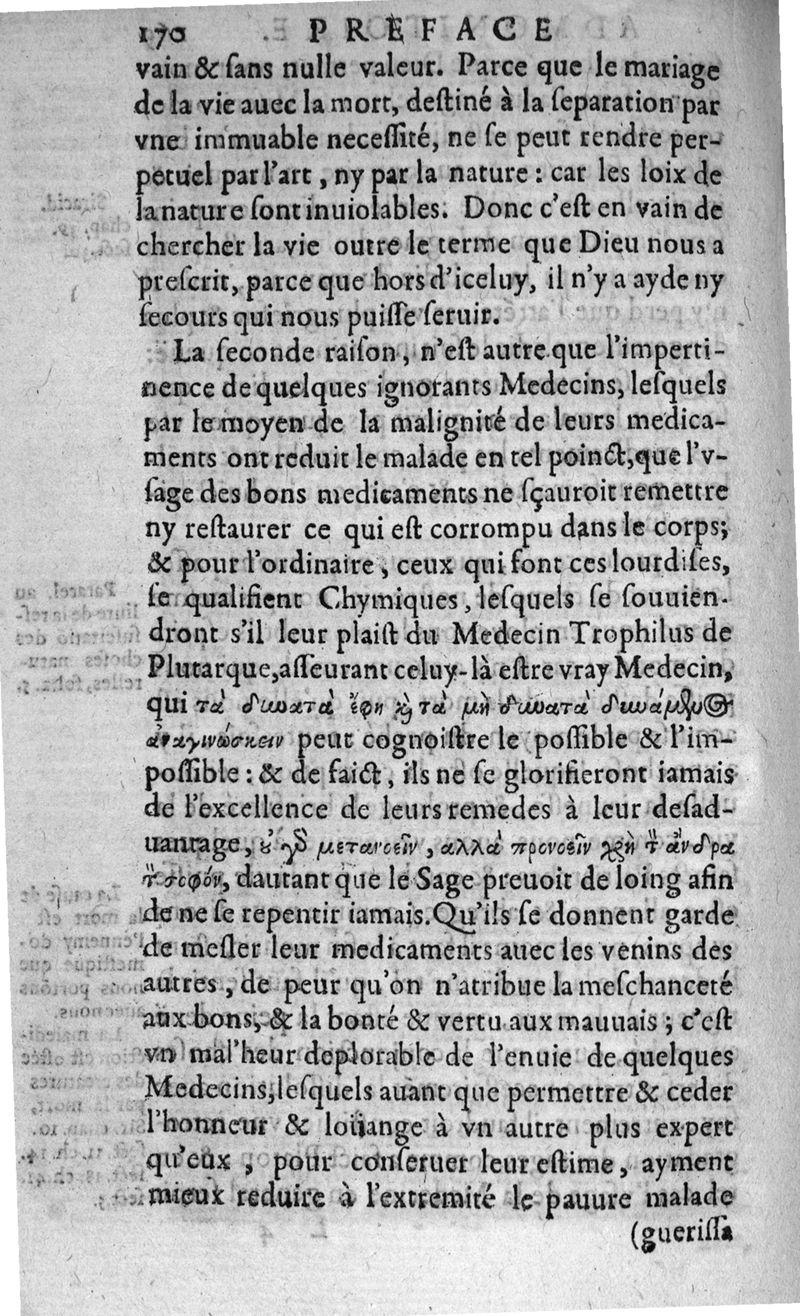 170 PREFACE
vain & sans nulle valeur. Parce que le mariage
de la vie auec la mort, destiné à la separation par
vne immuable necessité, ne se peut rendre per-
petuel par l'art, ny par la nature : car les loix de
la nature sont inuiolables. Donc c'est en vain de
chercher la vie outre le terme que Dieu nous a
prescrit, parce que hors d'iceluy, il n'y a ayde ny
secours qui nous puisse seruir.
La seconde raison, n'est autre que l'imperti-
nence de quelques ignorants Medecins, lesquels
par le moyen de la malignité de leurs medica-
ments ont reduit le malade en tel poinct, que l'v-
sage des bons medicaments ne sçauroit remettre
ny restaurer ce qui est corrompu dans le corps;
& pour l'ordinaire, ceux qui font ces lourdises,
se qualifient Chymiques, lesquels se souuien-
dront s'il leur plaist du Medecin Trophilus de
Plutarque, asseurant celuy-là estre vray Medecin,
qui τὰ δυνατὰ ἔφη ϗ τὰ μὴ δυνατὰ δυνάμενος
ἀναγινώσκειν peut cognoistre le possible & l'im-
possible : & de faict, ils ne se glorifieront iamais
de l'excellence de leurs remedes à leur desad-
uantage, ȣ γὰρ μετανοεῖν, αλλὰ προνοεῖν χρὴ τ ἄνδρα
τ σοφόν, dautant que le Sage preuoit de loing afin
de ne se repentir iamais. Qu'ils se donnent garde
de mesler leur medicaments auec les venins des
autres, de peur qu'on n'atribue la meschanceté
aux bons, & la bonté & vertu aux mauuais ; c'est
vn mal'heur deplorable de l'enuie de quelques
Medecins, lesquels auant que permettre & ceder
l'honneur & loüange à vn autre plus expert
qu'eux, pour conseruer leur estime, ayment
mieux reduire à l'extremité le pauure malade
(guerissa